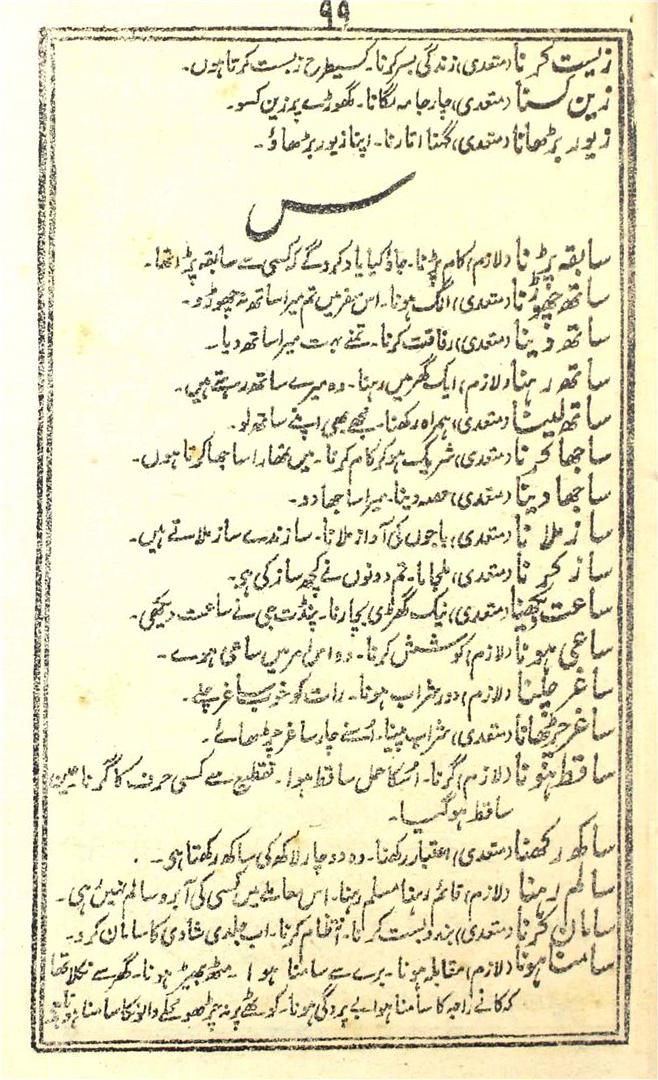 ۹۹
زیست کرنا (متعدی) زندگی بسر کرنا۔ کسیطرح زیست کرتا ہوں۔
زین کسنا (متعدی) چارجامہ لگانا۔ گھوڑے پر زین کسو۔
زیور بڑھانا (متعدی) گہنا اتارنا۔ اپنا زیور بڑھاؤ۔
س
سابقہ پڑنا (لازم) کام پڑنا۔ جاؤ کیا یاد کرو گے کہ کسی سے سابقہ پڑا تھا۔
ساتھ چھوڑنا (متعدی) الگ ہونا۔ اس سفر میں تم میرا ساتھ نہ چھوڑو۔
ساتھ دینا (متعدی) رفاقت کرنا۔ تمنے بہت میرا ساتھ دیا۔
ساتھ رہنا (لازم) ایک گھر میں رہنا۔ وہ میرے ساتھ رہتے ہیں۔
ساتھ لینا (متعدی) ہمراہ رکھنا۔ مجھے بھی اپنے ساتھ لو۔
ساجھا کرنا (متعدی) شریک ہو کر کام کرنا۔ میں تمھارا ساجھا کرتا ہوں۔
ساجھا دینا (متعدی) حصہ دینا۔ میرا ساجھا دو۔
ساز ملانا (متعدی) باجوں کی آواز ملانا۔ سازندے ساز ملاتے ہیں۔
ساز کرنا (متعدی) ملجانا۔ تم دونوں نے کچھ ساز کی ہی۔
ساعت دیکھنا (متعدی) نیک گھڑی بچارنا۔ پنڈت جی نے ساعت دیکھی۔
ساعی ہونا (لازم) کوشش کرنا۔ وہ اس امر میں ساعی ہوے۔
ساغر چلنا (لازم) دور شراب ہونا۔ رات کو خوب ساغر چلے۔
ساغر چڑھانا (متعدی) شراب پینا۔ اُسنے چار ساغر چڑھائے۔
ساقط ہونا (لازم) گرنا۔ اُسکا حمل ساقط ہوا۔ تقطیع سے کسی حرف کا گرنا۔ عین
ساقط ہو گیا۔
ساکھ رکھنا (متعدی) اعتبار رکھنا۔ وہ دو چار لاکھ کی ساکھ رکھتا ہی۔
سالم رہنا (لازم) قائم رہنا مسلم رہنا۔ اس معاملے میں کسی کی آبرو سالم نہیں ہی۔
سامان کرنا (متعدی) بندوبست کرنا۔ انتظام کرنا۔ اب جلدی شادی کا سامان کرو۔
سامنا ہونا (لازم) مقابلہ ہونا۔ برے سے سامنا ہوا۔ مٹھ بھیڑ ہونا۔ گھر سے نکلا تھا
کہ کانے راجہ کا سامنا ہوا بے پردگی ہونا۔ کوٹھے پر نہ چڑھو محلے والونکا سامنا ہوتا